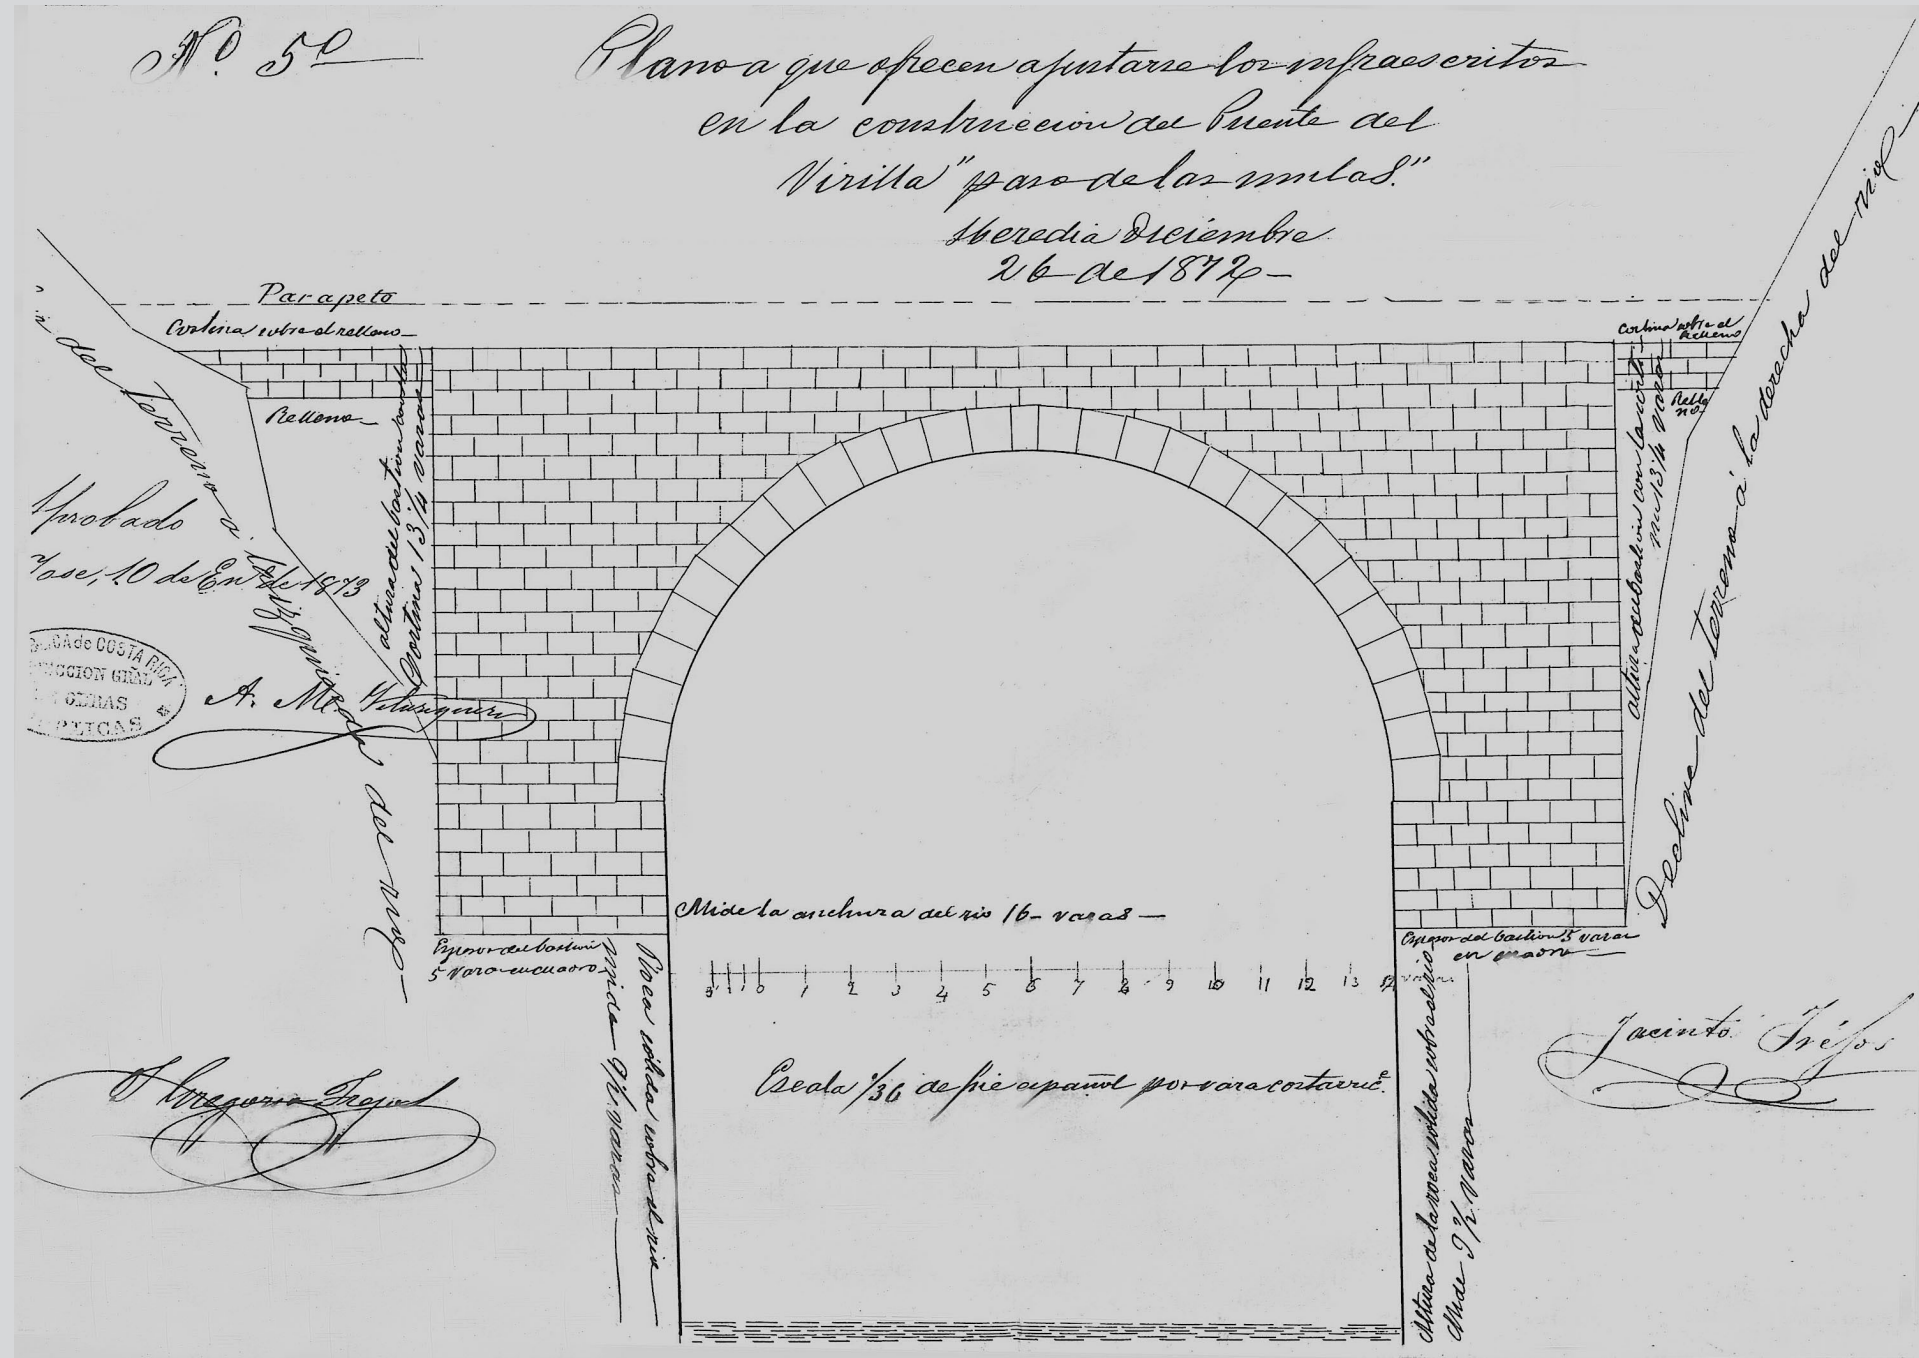 Nº. 5º
Plano a que ofrecen ajustarse los infraescritos
en la construccion del Puente del
Virilla "paso de las mulas."
Heredia Diciembre
26 de 1872
Parapeto
Cortina sobre el relleno
Relleno
altura del bastion con la
Cortina 13 1/4 varas
del Terreno a la izquierda del rio
Aprobado
José, 10 de En.º de 1873
CA de COSTA RICA
CCION GRAL
OBRAS
PUBLICAS
A. M.
Cortina sobre el
Relleno
Relle
no
altura del bastion con la cortina
mide 13 1/4 varas
Declive del terreno á la derecha del rio
Mide la anchura del rio 16 varas
Espesor del bastion
5 vara en cuadro
Roca sólida sobre el rio
mide 9 1/2 varas
3 2 1 0 1 2 3 4 5 6 7 8 9 10 11 12 13 14 varas
Espesor del bastion 5 varas
en cuadro
Escala 1/36 de pie español por vara costarric.e
Altura de la roca sólida sobre el rio
Mide 9 1/2 varas
Gregorio Trejos
Jacinto Tréjos